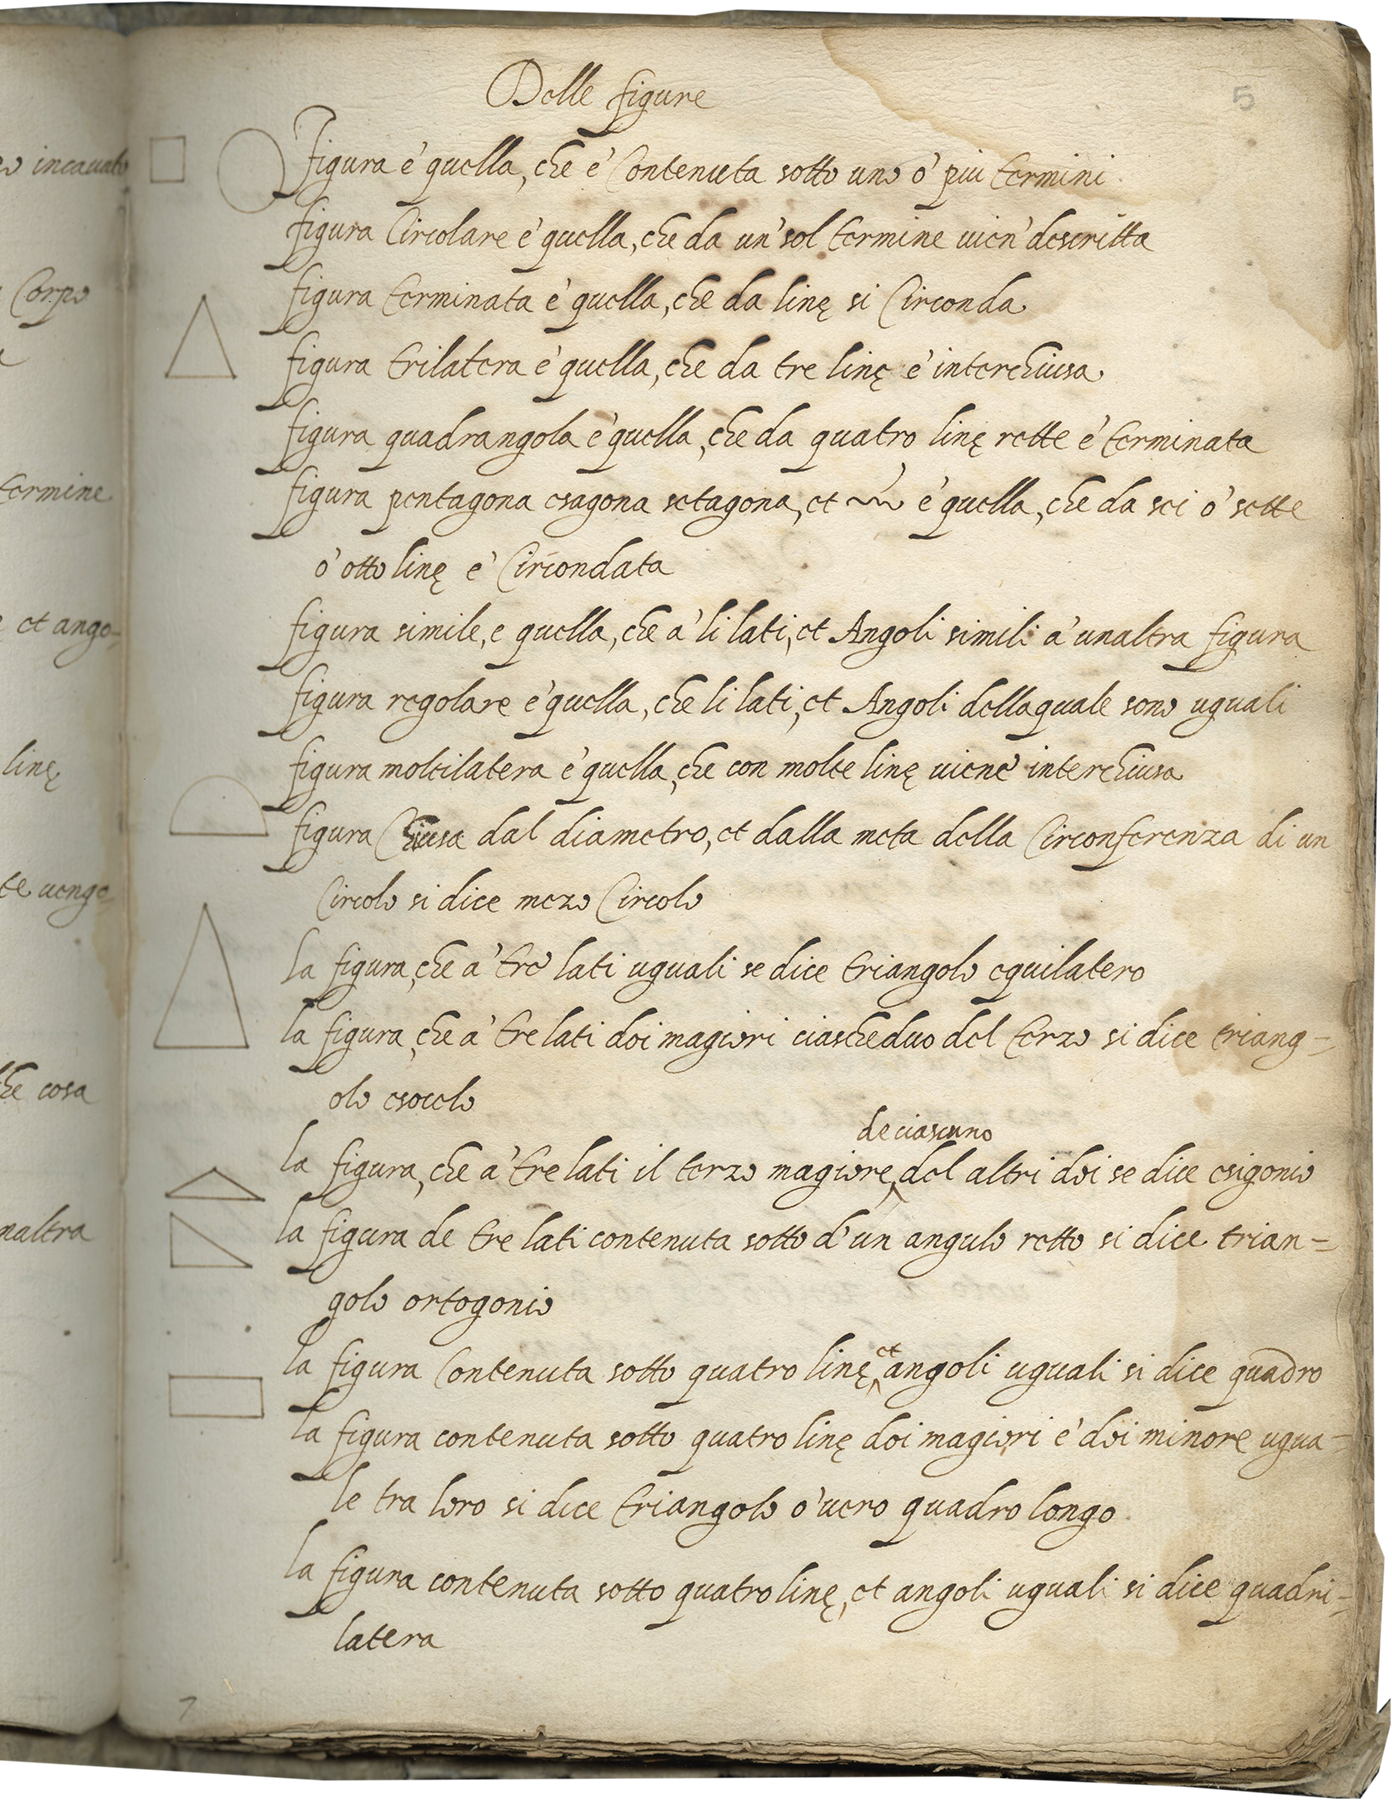 Delle figure
5
figura è quella, che è Contenuta sotto uno ò piu termini
figura Circolare è quella, che da un' sol termine vien' descritta
figura terminata è quella, che da linę si Circonda
figura trilatera è quella, che da tre linę è interchiusa
figura quadrangola è quella, che da quatro linę rette è terminata
figura pentagona esagona setagona, et è quella, che da sei ò sette
ò otto linę è Circondata
figura simile, e quella, che à li lati, et Angoli simili à unaltra figura
figura regolare è quella, che li lati, et Angoli dellaquale sono uguali
figura moltilatera è quella, che con molte linę viene interchiusa
figura Chiusa dal diametro, et dalla meta della Circonferenza di un
Circolo si dice mezo Circolo
la figura, che à tre lati uguali se dice triangolo equilatero
la figura, che à tre lati doi magiori ciascheduo del terzo si dice triang=
olo esocelo
deciascuno
la figura, che à tre lati il terzo magiore, del altri doi se dice esigonio
la figura de tre lati contenuta sotto d'un angulo retto si dice trian=
golo ortogonio
la figura Contenuta sotto quatro linę et angoli uguali si dice quadro
la figura contenuta sotto quatro linę doi magiori è doi minore ugua=
le tra loro si dice triangolo ò vero quadro longo
la figura contenuta sotto quatro linę, et angoli uguali si dice quadri=
latera
7
incauato
Corpo
termine
et ango=
linę
te uenge=
che cosa
naltra